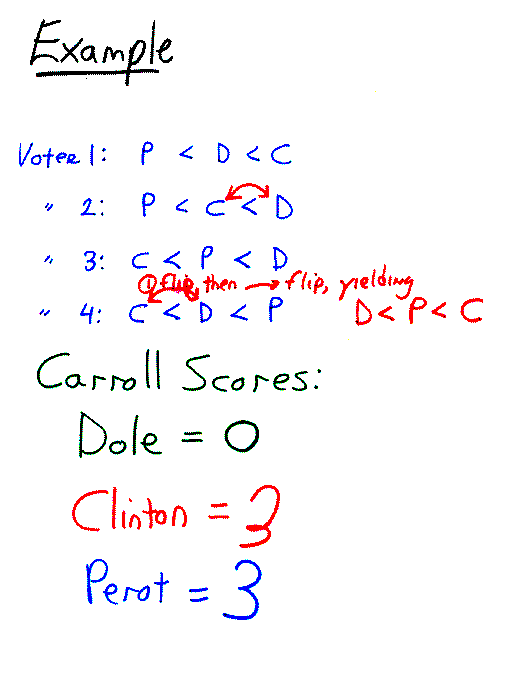 Example
Voter 1: P < D < C
" 2: P < C < D
" 3: C < P < D
① flip, then → flip, yielding
" 4: C < D < P D < P < C
Carroll Scores:
Dole = 0
Clinton = 3
Perot = 3